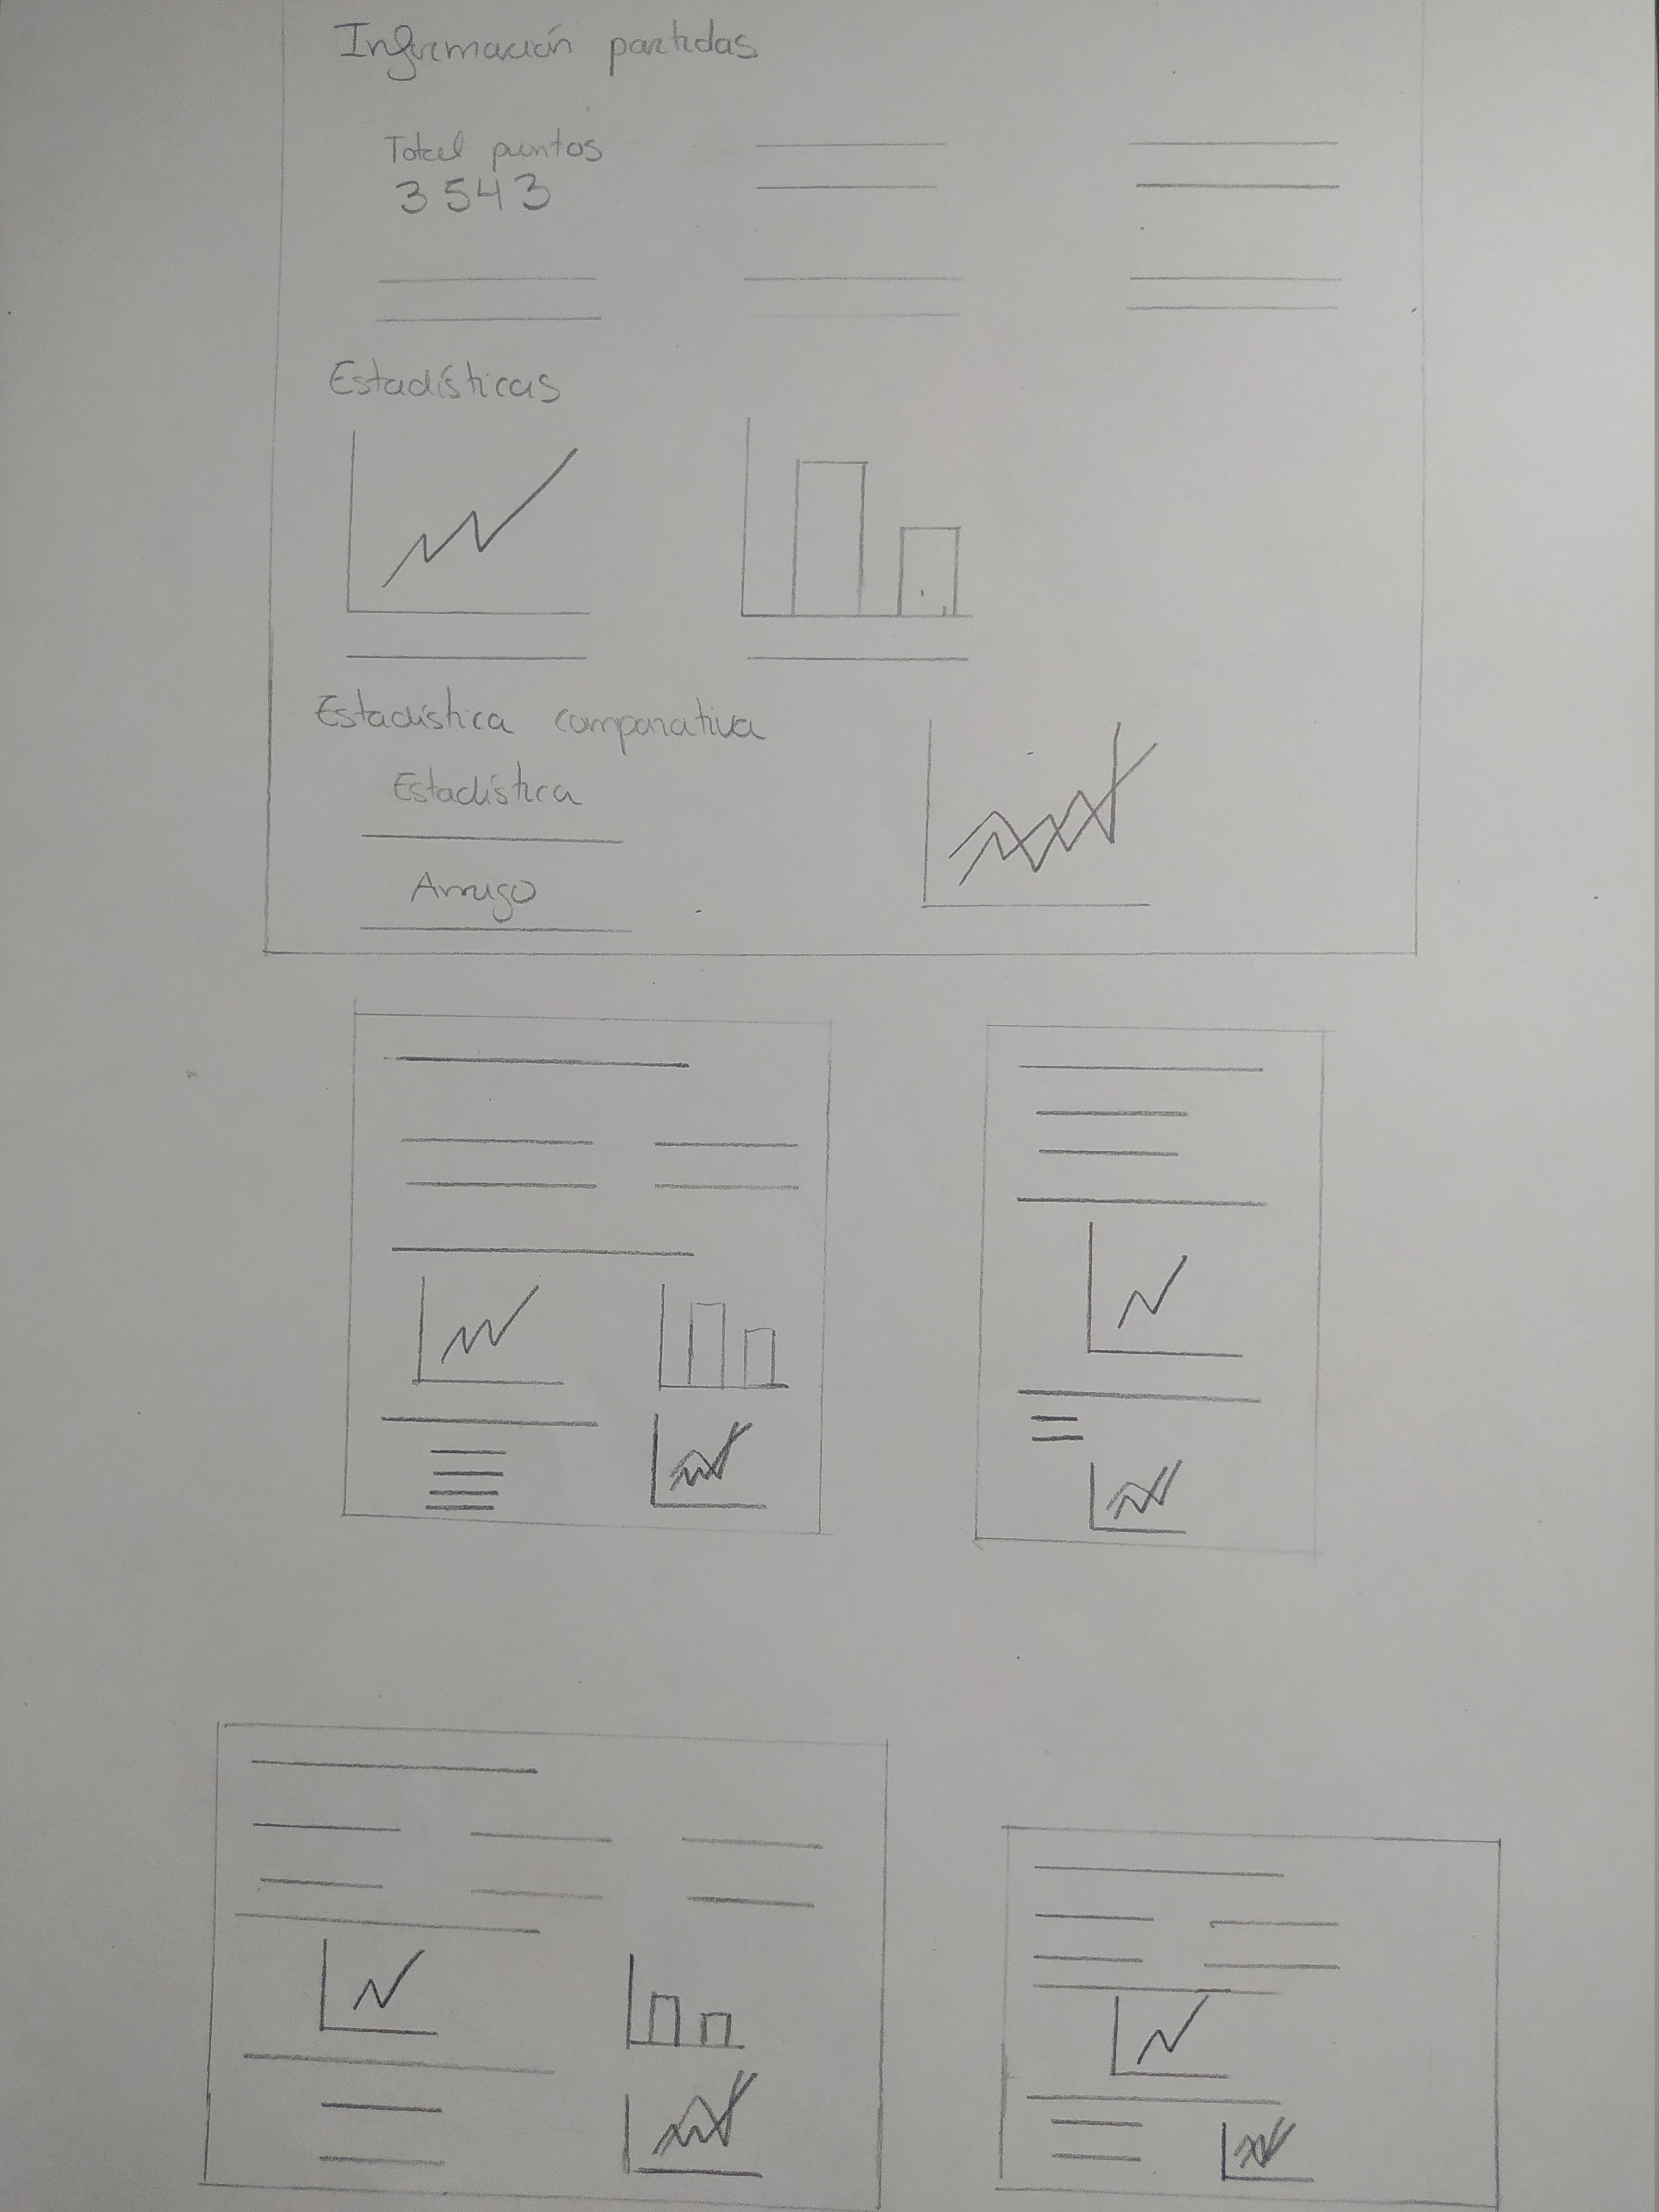 Información partidas
Total puntos
3543
Estadísticas
Estadística comparativa
Estadística
Amigo